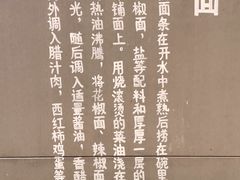 面
面条在开水中煮熟后捞在碗里
椒面，盐等配料和厚厚一层的
铺面上。用烧滚烫的菜油浇在
热油沸腾，将花椒面、辣椒面
光，随后调入适量酱油，香醋
外调入腊汁肉，西红柿鸡蛋等